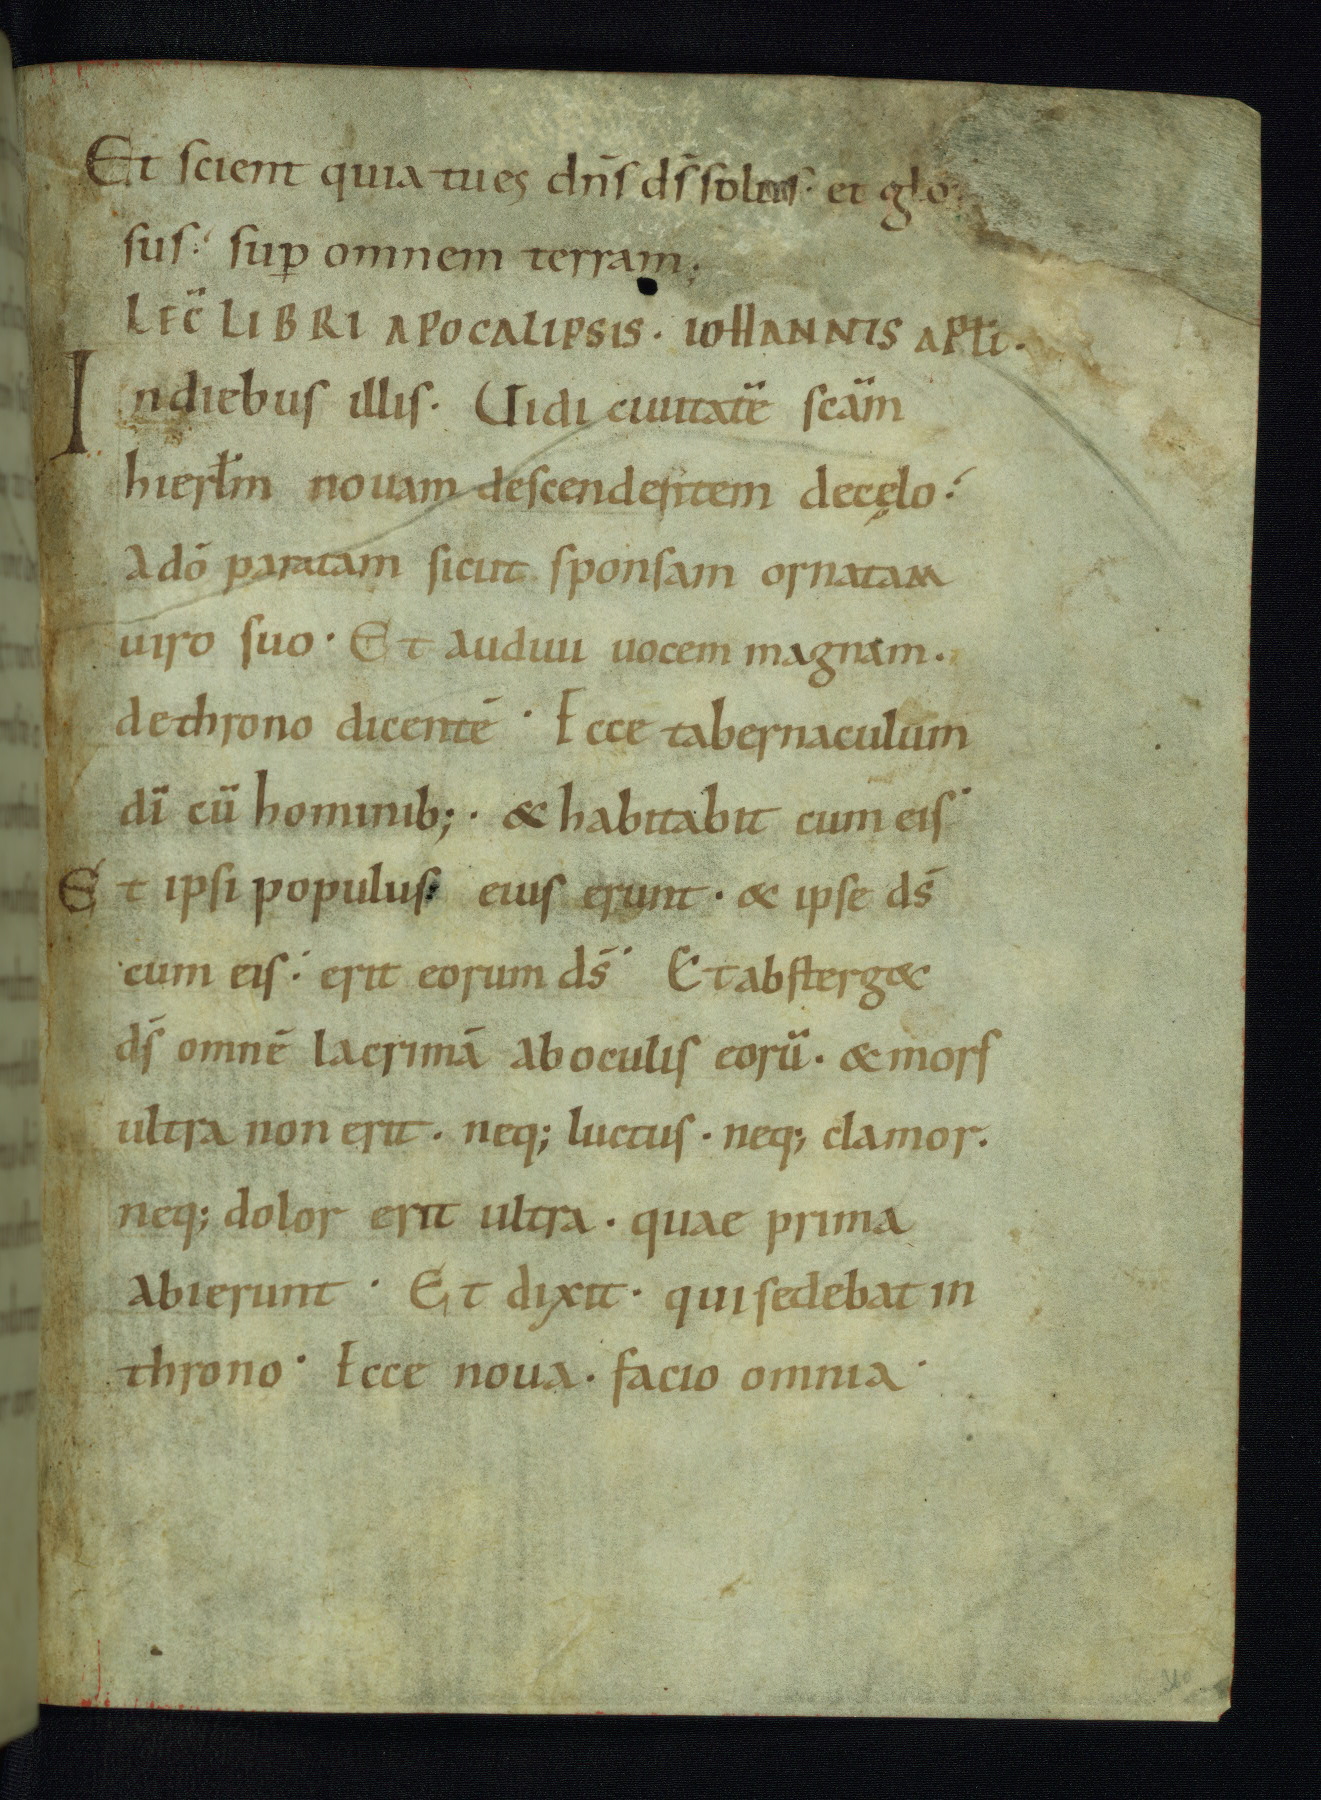 Et scient quia tu es dn̄s ds̄ solus· et glo
sus·́ suꝑ omnem terram;
LEC̄ LIBRI APOCALIPSIS· IOHANNIS APƚI·
In diebus illis· Uidi ciuitatē scām
hierƚm nouam descendentem de cęlo·́
A dō paratam sicut sponsam ornatam
uiro suo· Et audiui uocem magnam·
de throno dicentē· Ecce tabernaculum
dī cū hominib;· & habitabit cum eis·
Et ipsi populus eius erunt· & ipse ds̄
cum eis·́ erit eorum ds̄· Et absterg&
ds̄ omnē lacrimā ab oculis eorū· & mors
ultra non erit· neq; luctus· neq; clamor·
neq; dolor erit ultra· quae prima
abierunt· Et dixit· qui sedebat in
throno· Ecce noua· facio omnia·